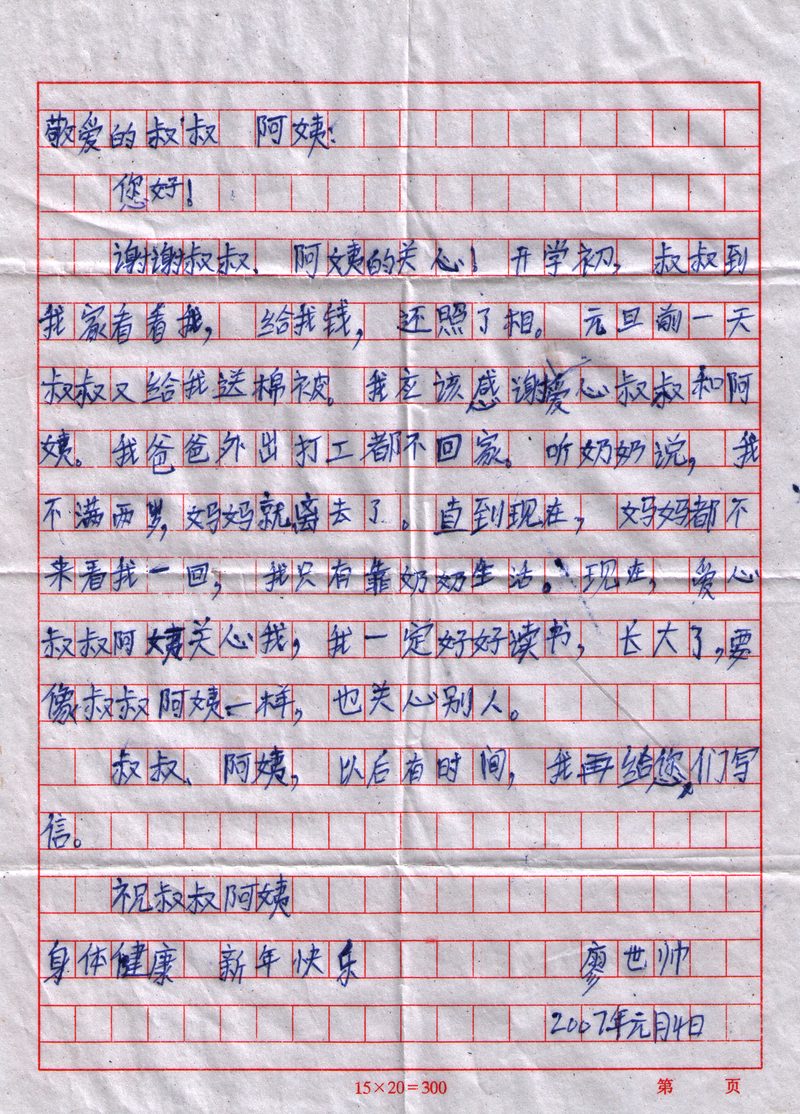 敬爱的叔叔 阿姨:
您好!
谢谢叔叔、阿姨的关心!开学初,叔叔到
我家看看我,给我钱,还照了相。元旦前一天
叔叔又给我送棉被。我应该感谢爱心叔叔和阿
姨。我爸爸外出打工都不回家。听奶奶说,我
不满两岁,妈妈就离去了。直到现在,妈妈都不
来看我一回,我只有靠奶奶生活。现在,爱心
叔叔阿姨关心我,我一定好好读书,长大了,要
像叔叔阿姨一样,也关心别人。
叔叔、阿姨,以后有时间,我再给您们写
信。
祝叔叔阿姨
身体健康 新年快乐 廖世帅
2007年元月4日
15×20=300 第 页